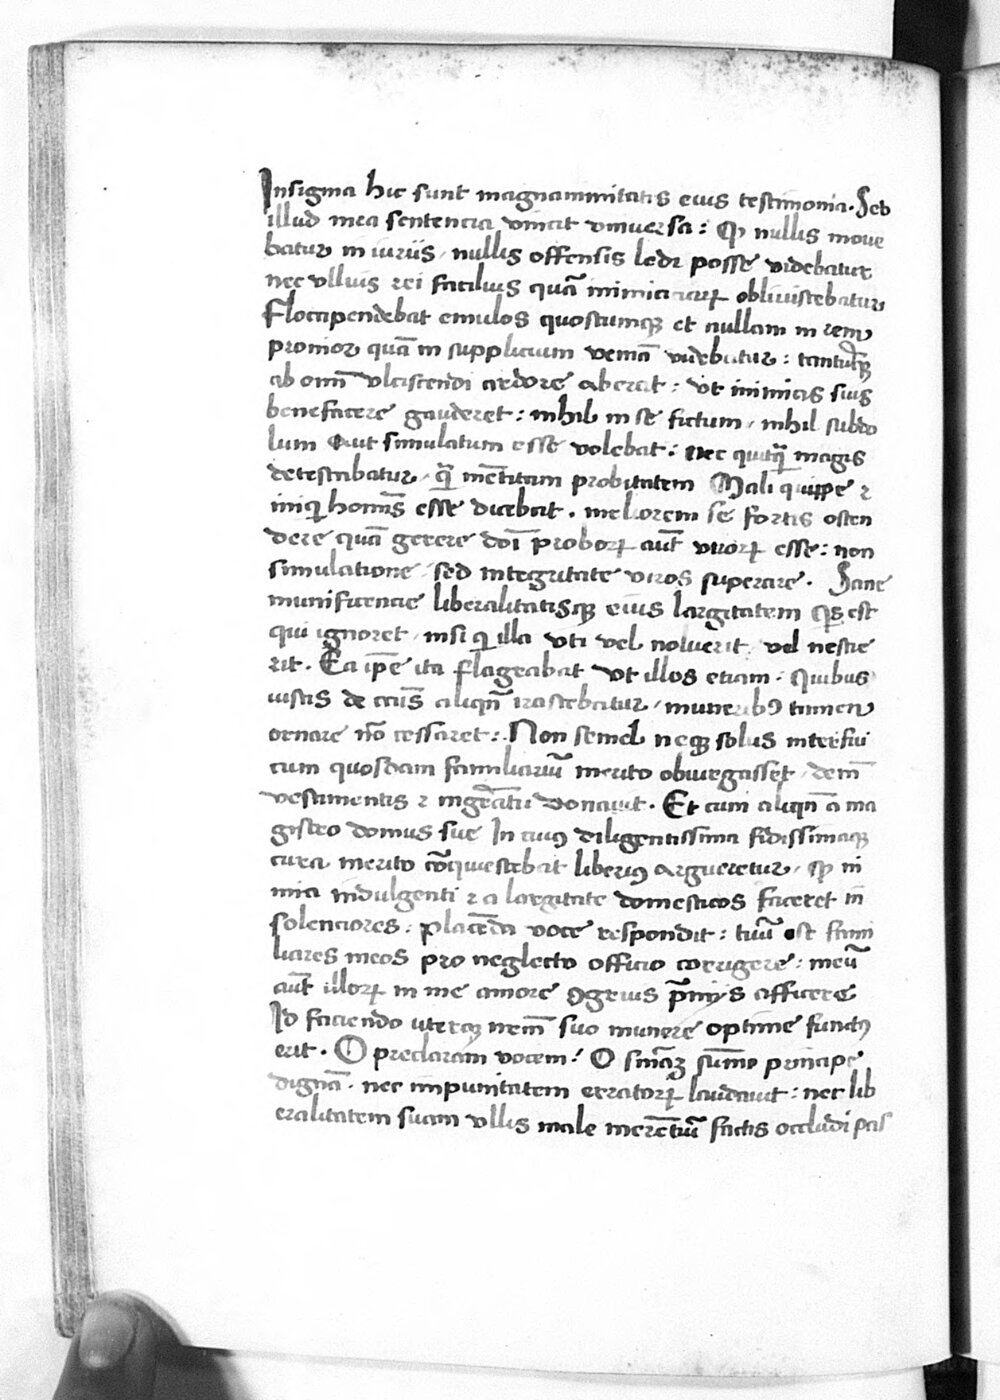 Insignia hic sunt magnanimitatis eius testimonia. Sed
illud mea sentencia vincit vniuersa: Qp nullis moue
batur iniuriis, nullis offensis ledi posse videbatur
nec vllius rei facilius quã inimiciciaꝝ obliuiscebatur
Floccipendebat emulos quoscumqꝫ et nullam in rem
pronior quã in supplicium veniã videbatur: tantũqꝫ
ab omñi vlciscendi ardore aberat: vt inimicis suis
benefacere gauderet: nihil in se fictum, nihil subdo
lum aut simulatum esse volebat: nec quicq̃ magis
detestabatur, q̃ mẽtitam probitatem Mali quippe ⁊
iniqi homĩs esse dicebat. meliorem se foris osten
dere quã gerere domĩ proboꝝ aũt viroꝝ esse: non
simulatione, sed integritate viros superare. Sane
munificencie liberalitatisqꝫ eius largitatem qͥs est
qui ignoret, nisi qͥ illa vti vel noluerit, vel nescie
rit. Ea ip̃e ita flagrabat vt illos etiam, Quibus
iustis de cãis aliqñ irascebatur, muneribꝰ tamen
ornare nõ cessaret: Non semel neqꝫ solus interfui
cum quosdam familiariũ merito obiurgasset, dem̃
vestimentis ⁊ ingẽti ẽre donauit. Et cum aliqñ a ma
gistro domus sue In cuiꝰ diligentissima fidissimaqꝫ
cura merito cõquiescebat liberiꝰ argueretur, qp ni
mia indulgenti ⁊ a largitate domesticos faceret in
solenciores: placẽda voce respondit: tuũ est fami
liares meos pro neglecto officio corrigere: meũ
aũt illoꝝ in me amore egreius p̃mijs afficere
Id faciendo uterqꝫ nem̃ suo munere optime functꝰ
erit. O preclaram vocem! O summo principe
dignã. nec impunitatem erratoꝝ laudauit: nec lib
eralitatem suam vllis male merẽtiũ factis occludi pas